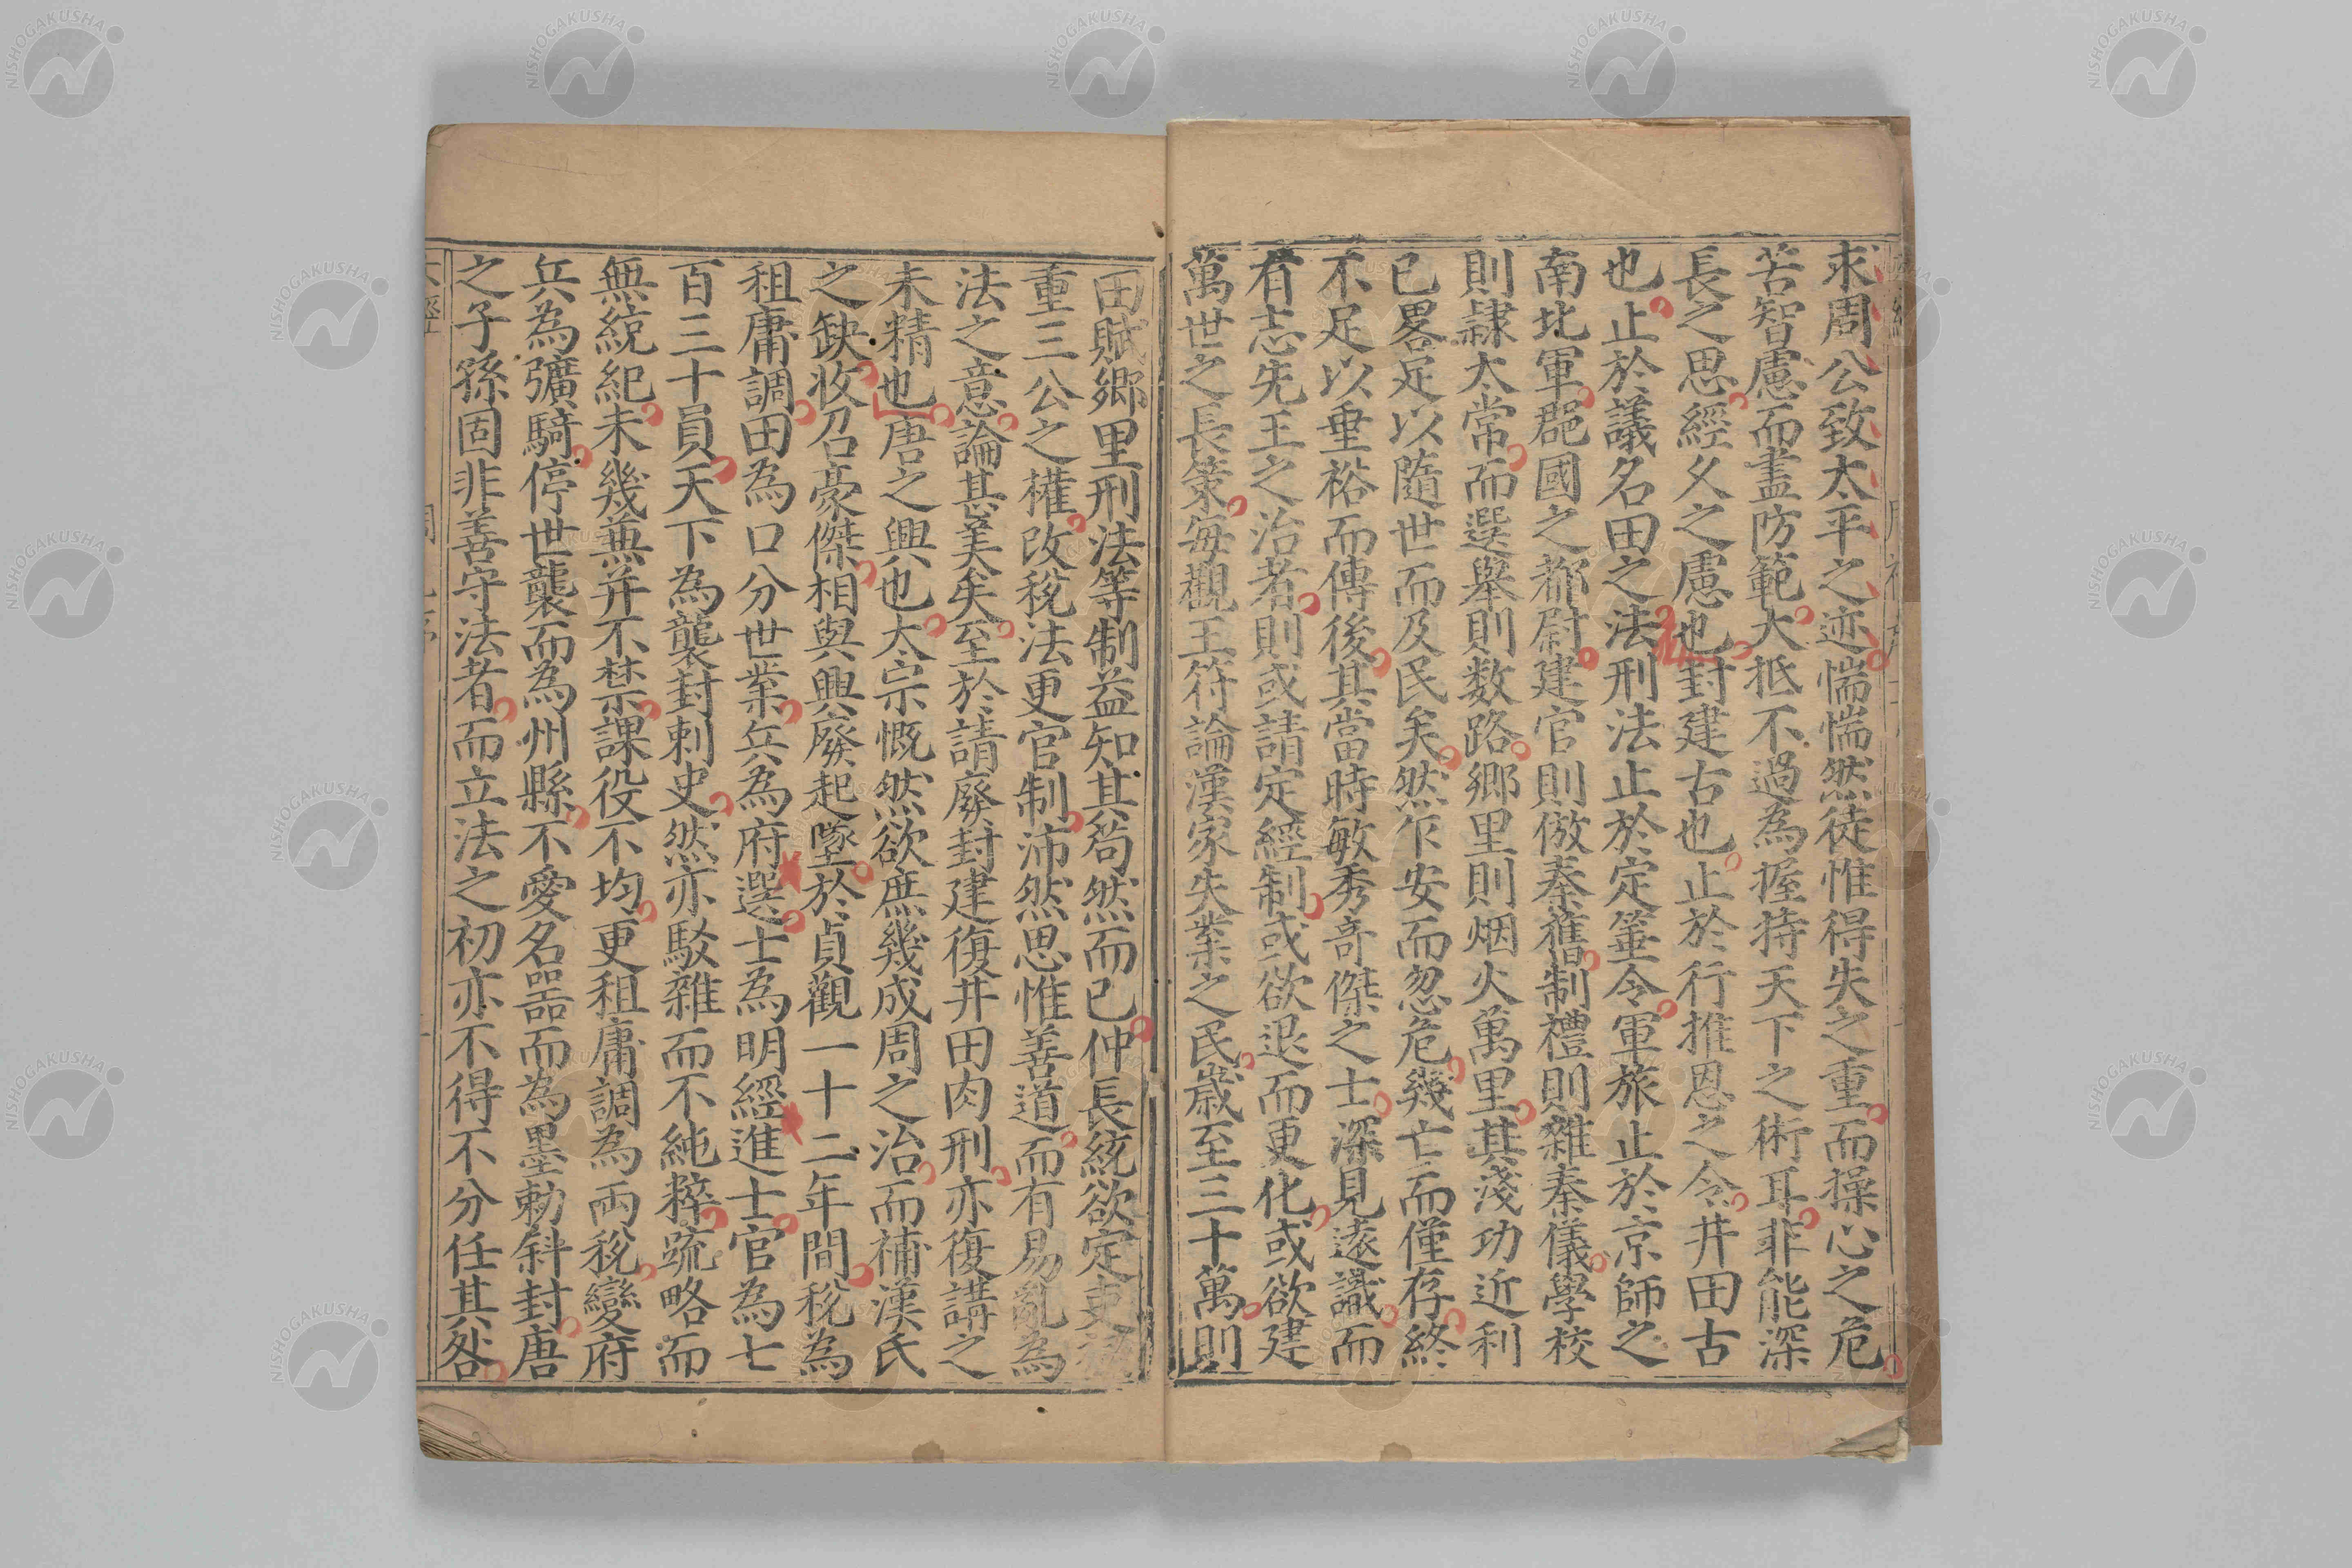 求周公致太平之迹惴惴然徒惟得失之重而操心之危
苦智慮而盡防範大抵不過為握持天下之術耳非能深
長之思經久之慮也封建古也止於行推恩之令井田古
也止於議名田之法刑法止於定箠令軍旅止於京師之
南北軍郡國之都尉建官則倣秦舊制禮則雜秦儀學校
則隷太常而選舉則数路鄉里則烟火萬里其淺功近利
已畧足以隨世而及民矣然乍安而忽危幾亡而僅存終
不足以垂裕而傳後其當時敏秀竒傑之士深見遠識而
有志先王之治者則或請定經制或欲退而更化或欲建
萬世之長策每觀王符論漢家失業之民歲至三十萬則
田賦鄉里刑法等制益知其苟然而已仲長統欲定吏
重三公之權改稅法更官制沛然思惟善道而有易亂為
法之意論其美矣至於請廢封建復井田肉刑亦復講之
未精也唐之興也太宗慨然欲庶幾成周之治而補漢氏
之缺收召豪傑相與興廢起墜於貞觀一十二年間稅為
租庸調田為口分世業兵為府選士為明經進士官為七
百三十員天下為襲封刺史然亦駁雜而不純粹疏略而
無統紀未幾兼并不禁課役不均更租庸調為両稅變府
兵為彍騎停世襲而為州縣不愛名器而為墨勅斜封唐
之子孫固非善守法者而立法之初亦不得不分任其咎
NISHOGAKUSHA